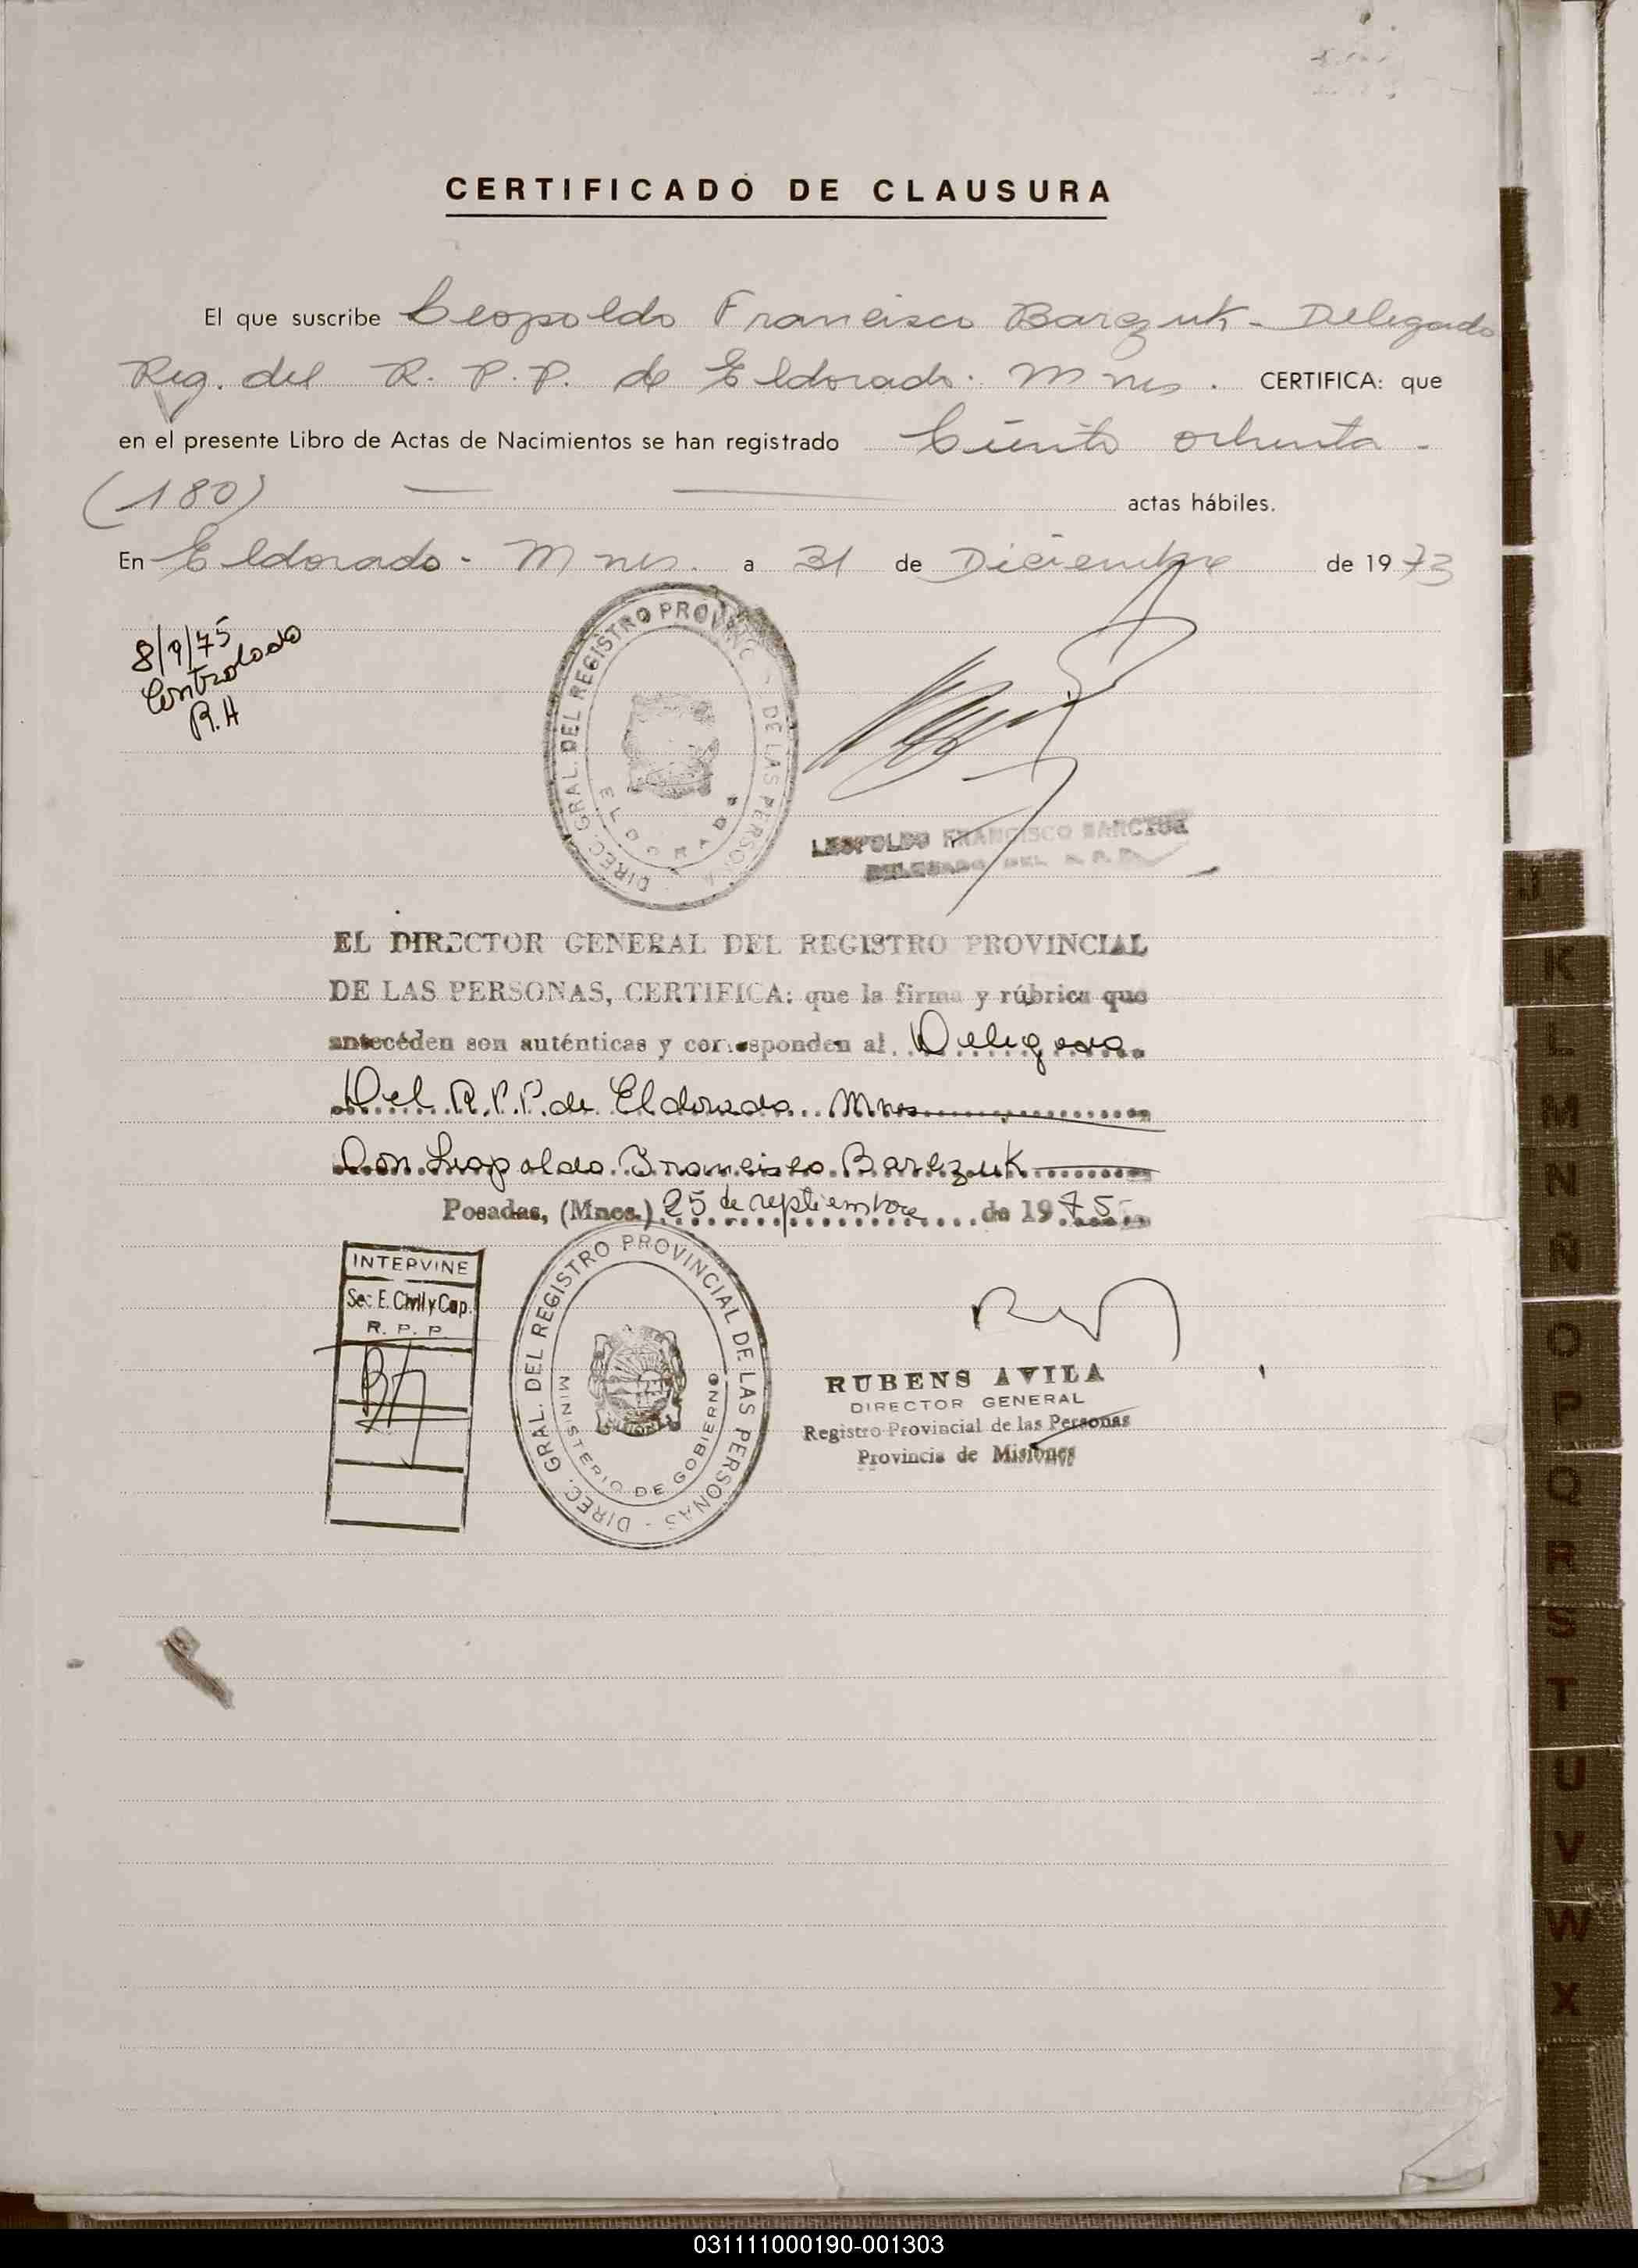 CERTIFICADO DE CLAUSURA
El que suscribe Leopoldo Francisco Barczuk - Delegado
Reg. del R. P. P. de Eldorado. Mnes. CERTIFICA: que
en el presente Libro de Actas de Nacimientos se han registrado Ciento ochenta -
(180) actas hábiles.
En Eldorado - Mnes. a 31 de Diciembre de 1973
8/9/75
Controlado
R.H
DIREC. GRAL. DEL REGISTRO PROVINC. DE LAS PERSONA
ELDORADO
LEOPOLDO FRANCISCO BARCZUK
DELEGADO DEL R. P. P.
EL DIRECTOR GENERAL DEL REGISTRO PROVINCIAL
DE LAS PERSONAS, CERTIFICA: que la firma y rúbrica que
anteceden son auténticas y corresponden al Delegado
Del R.P.P. de Eldorado Mnes
Don Leopoldo Francisco Barczuk
Posadas, (Mnes.) 25 de septiembre de 1975
INTERVINE
Sec. E. Civil y Cap.
R. P. P.
DIREC. GRAL. DEL REGISTRO PROVINCIAL DE LAS PERSONAS -
MINISTERIO DE GOBIERNO
RUBENS AVILA
DIRECTOR GENERAL
Registro Provincial de las Personas
Provincia de Misiones
J
K
L
M
N
Ñ
O
P
Q
R
S
T
U
V
W
X
031111000190-001303